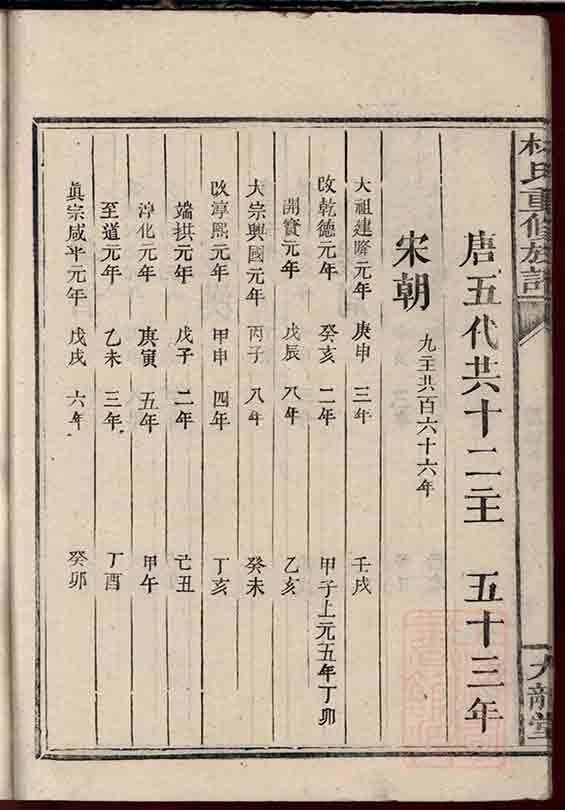 林氏重修族譜
唐五代共十二主　五十三年
宋朝　九主共百六十六年
大祖建隆元年　庚申　三年　壬戌
改乾德元年　癸亥　二年　甲子上元五年丁卯
開寶元年　戊辰　八年　乙亥
大宗興國元年　丙子　八年　癸未
改淳熙元年　甲申　四年　丁亥
端拱元年　戊子　二年　亡丑
淳化元年　庚寅　五年　甲午
至道元年　乙未　三年　丁酉
眞宗咸平元年　戊戌　六年　癸卯